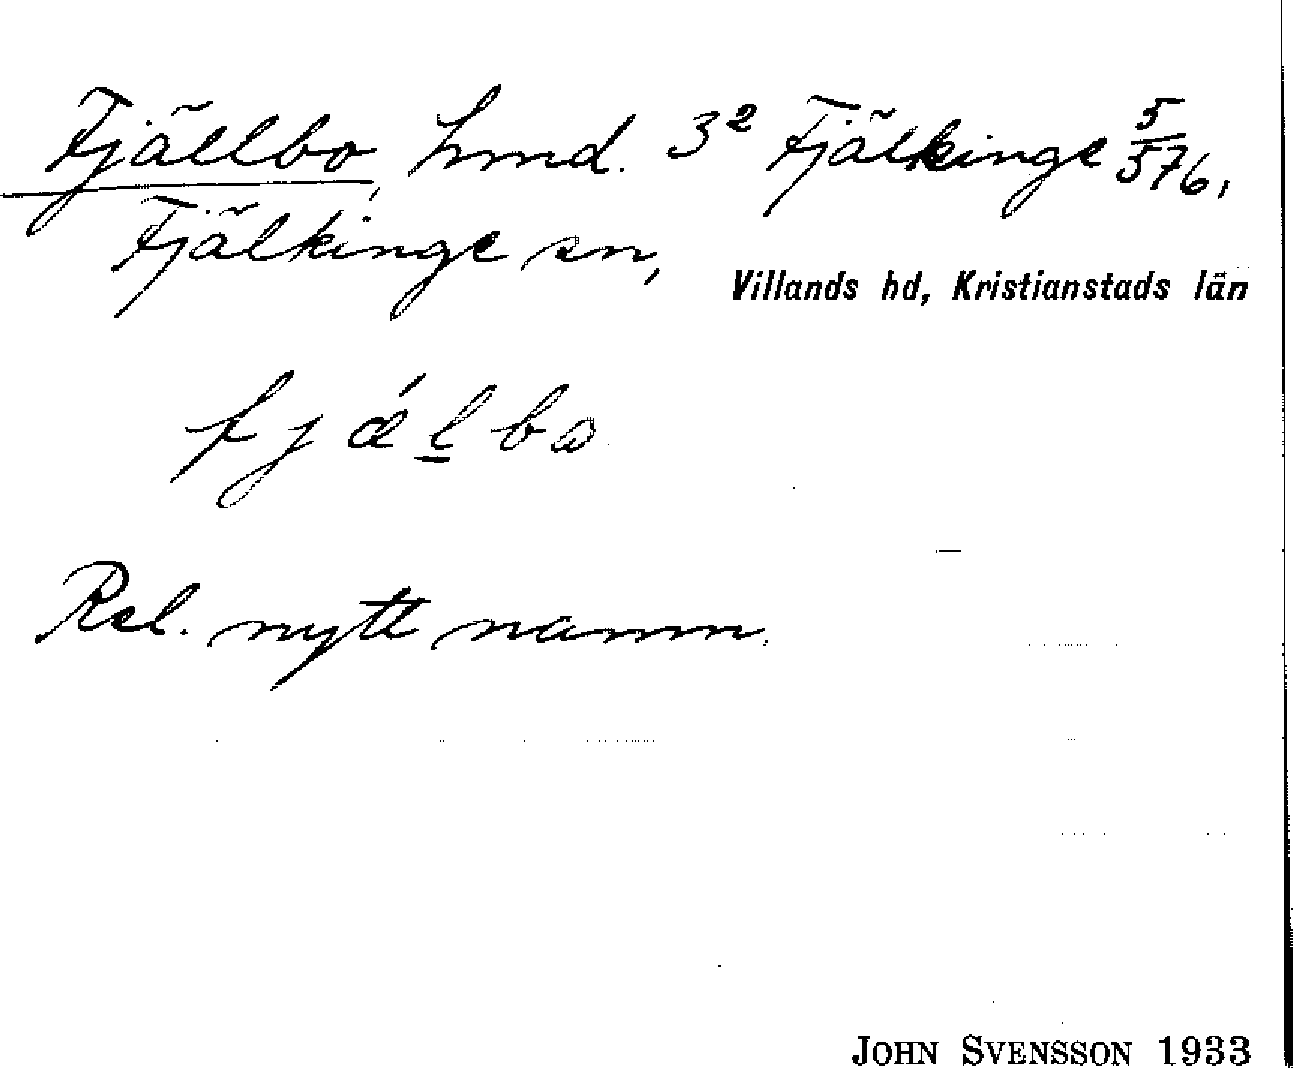 Fjällbo, hmd. 3² Fjälkinge 5/576,
Fjälkinge sn,
Villands hd, Kristianstads län
fjǽl̲bo
Rel. nytt namn.
JOHN SVENSSON 1933